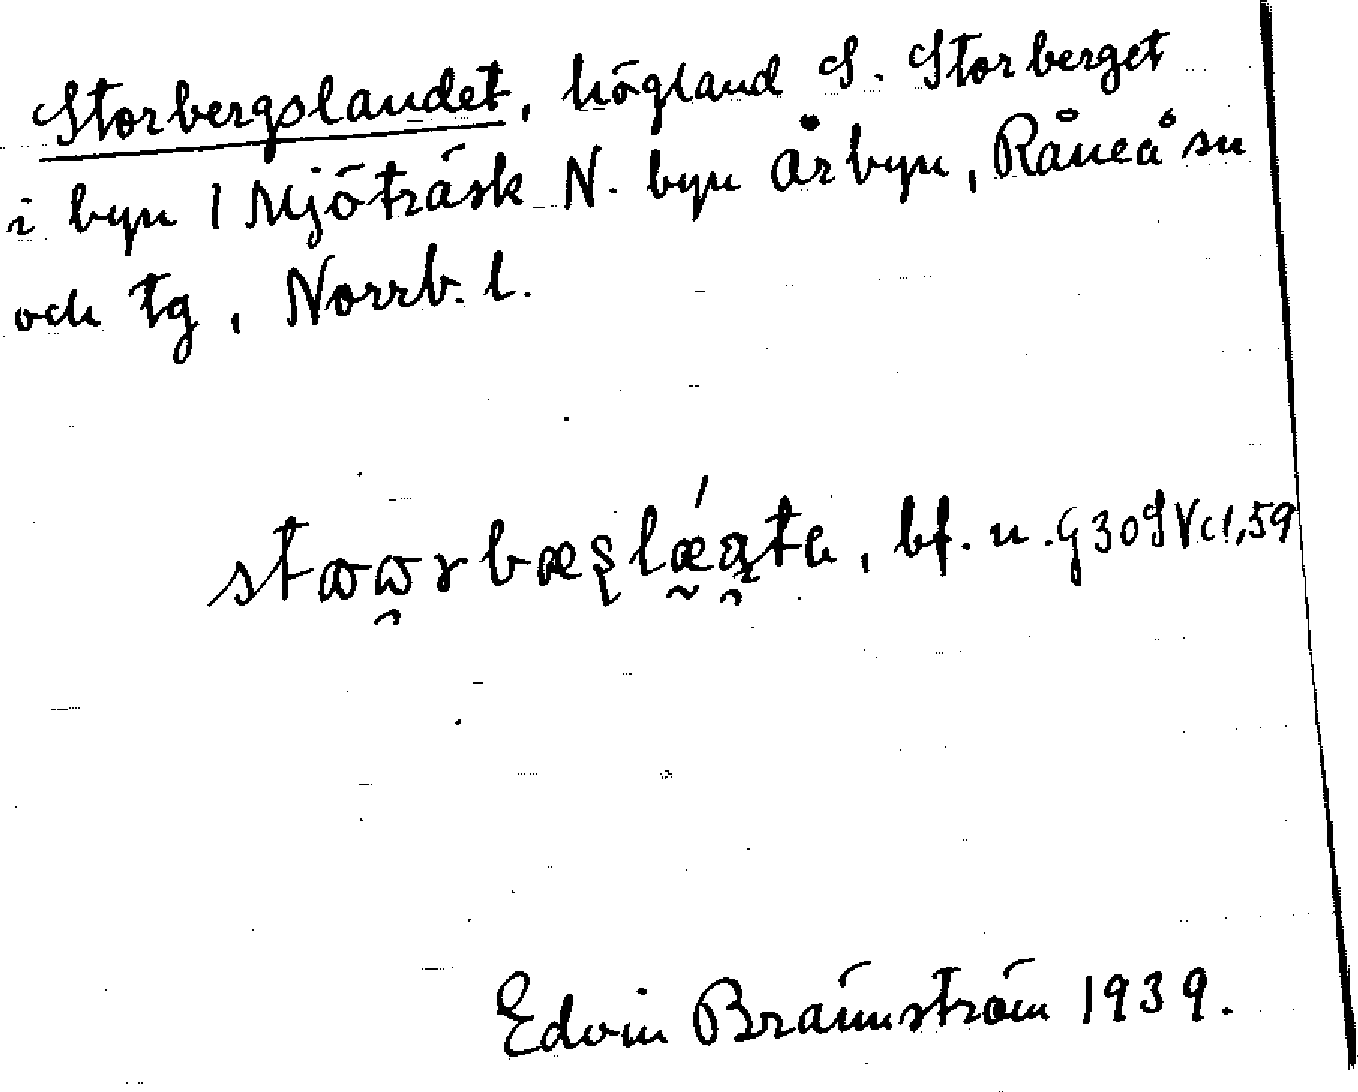 Storbergslandet, högland S. Storberget
i byn 1 Mjöträsk N. byn Årbyn, Råneå sn
och tg, Norrb. l.
bf. n. G30SVc1,59
Edvin Brännström 1939.